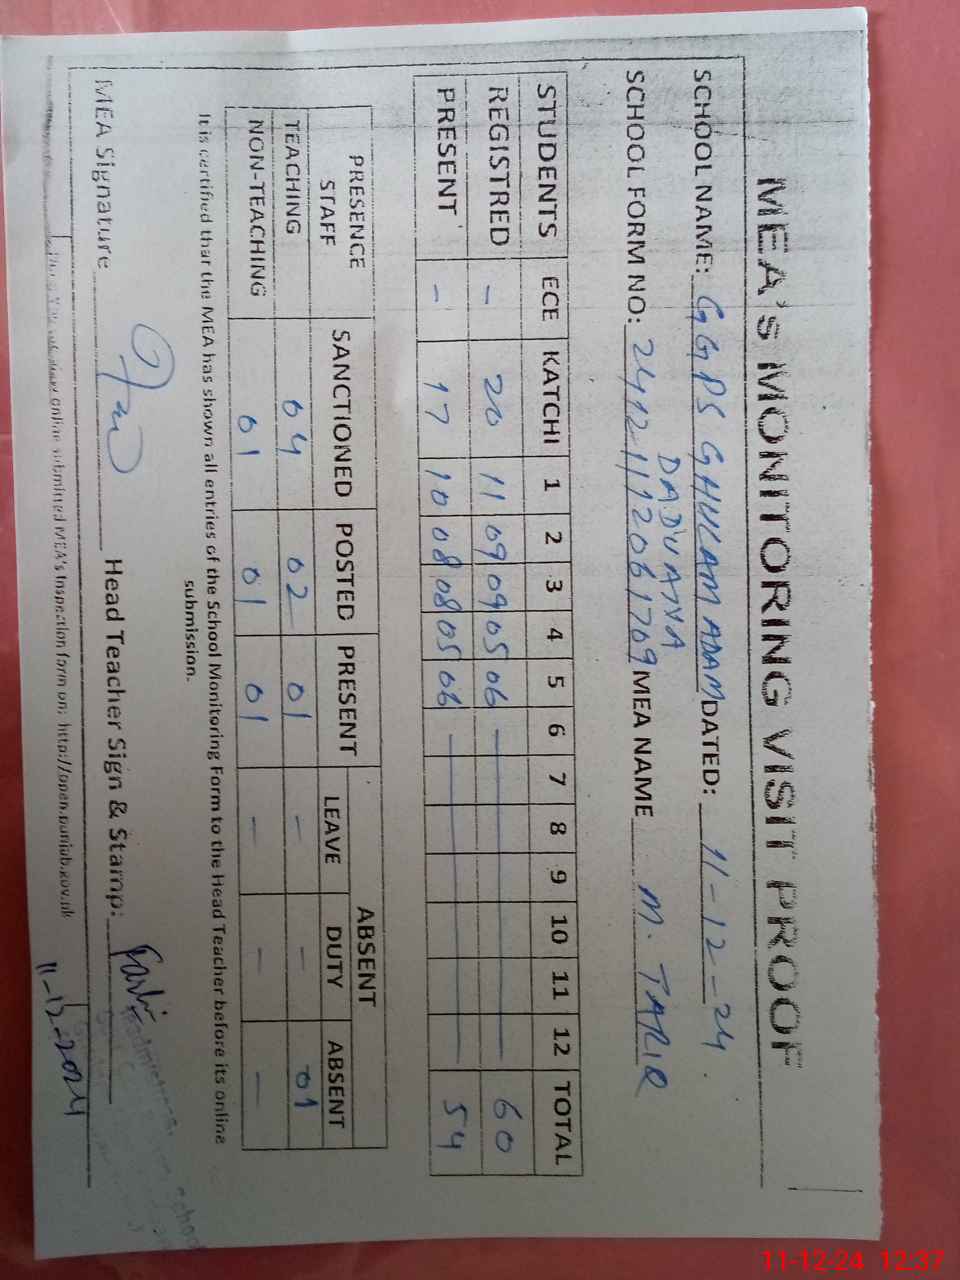 MEA'S MONITORING VISIT PROOF
SCHOOL NAME: GGPS GHULAM ADAM DATED: 11-12-24
DADUANA
SCHOOL FORM NO: MEA NAME M. TARIQ
STUDENTS ECE KATCHI 1 2 3 4 5 6 7 8 9 10 11 12 TOTAL
REGISTRED - 20 11 09 09 05 06 60
PRESENT - 17 10 08 08 05 06 54
PRESENCE STAFF SANCTIONED POSTED PRESENT ABSENT
LEAVE DUTY ABSENT
TEACHING 04 02 01 - - 01
NON-TEACHING 01 01 01 - - -
It is certified that the MEA has shown all entries of the School Monitoring Form to the Head Teacher before its online
submission.
MEA Signature Head Teacher Sign & Stamp:
online submitted MEA's Inspection form on: http://open.punjab.gov.pk
11-12-2024
11-12-24 12:37